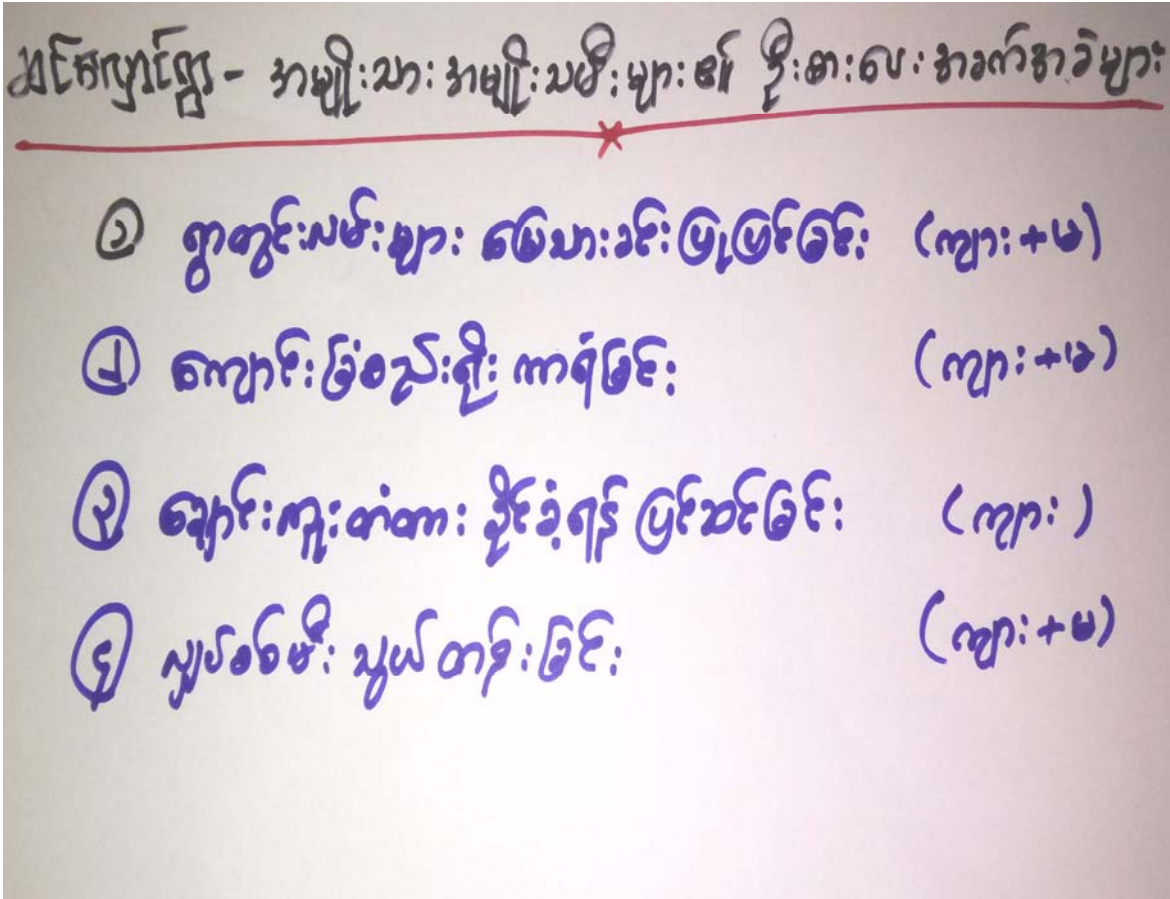 ဆင်ကျောင်းရွာ - အမျိုးသား အမျိုးသမီးများ၏ ဦးစားပေး အခက်အခဲများ
၁ ရွာတွင်းလမ်းများ မြေသားခင်းပြုပြင်ခြင်း (ကျား+မ)
၂ ကျောင်းခြံစည်းရိုး ကာရံခြင်း (ကျား+မ)
၃ ချောင်းကူးတံတား ခိုင်ခံ့ရန် ပြင်ဆင်ခြင်း (ကျား)
၄ လျှပ်စစ်မီး သွယ်တန်းခြင်း (ကျား+မ)